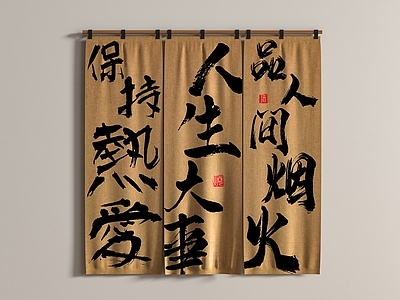 保持熱愛
人生大事
品人间烟火